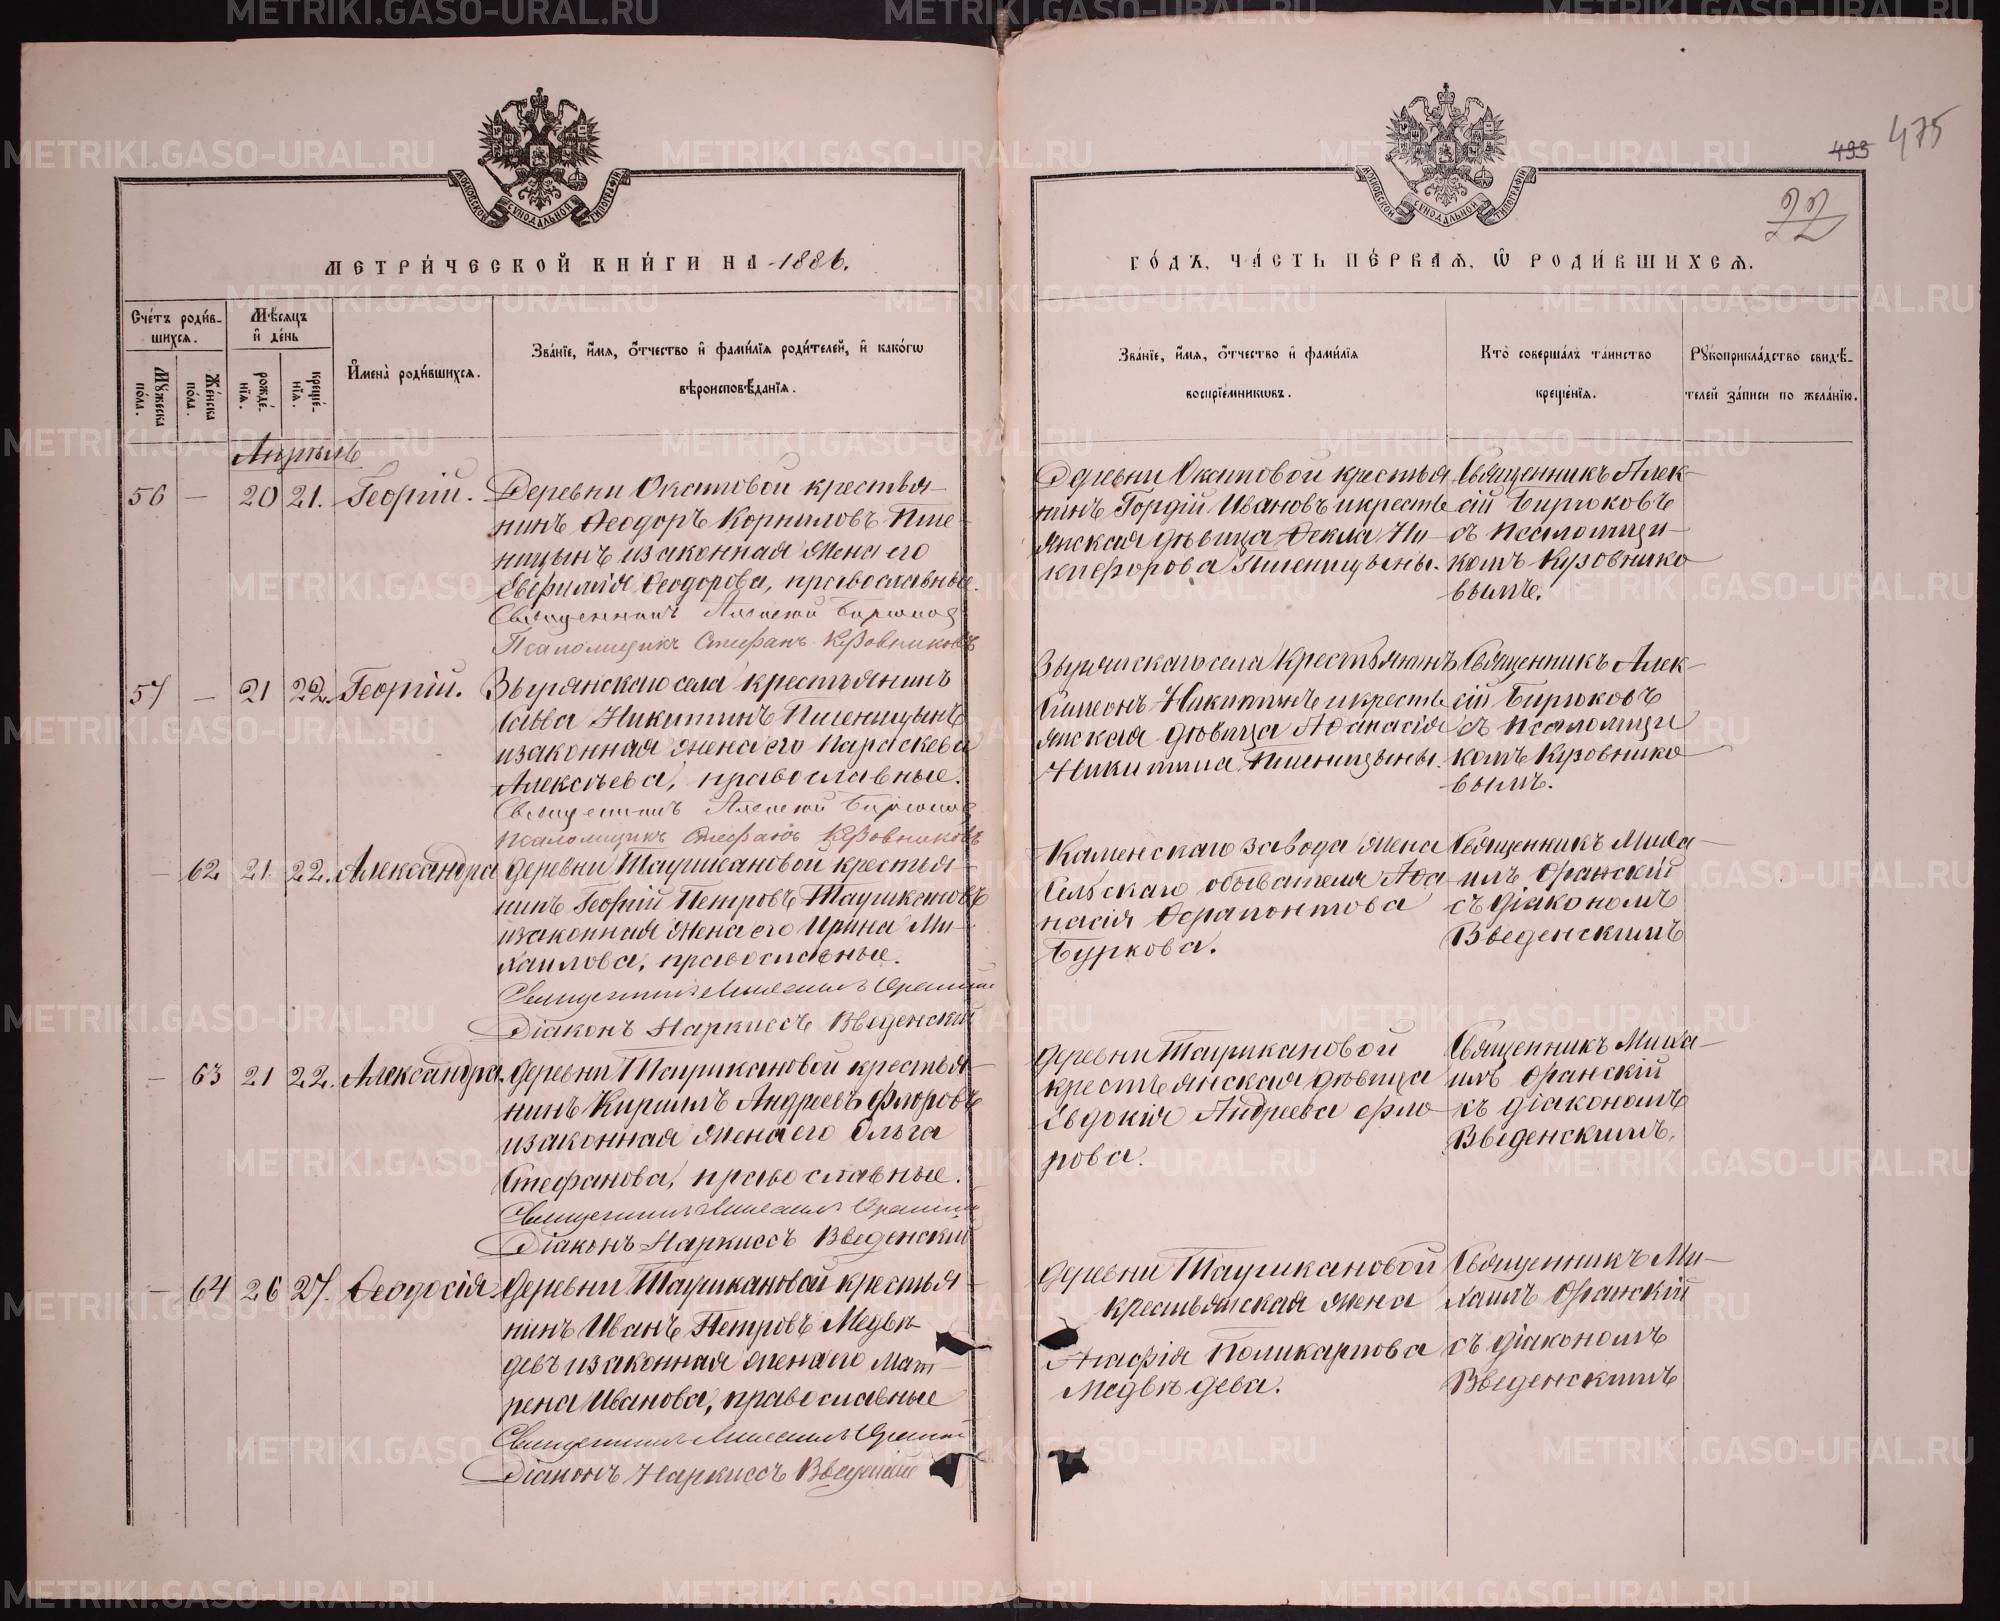 МЕТРИ́ЧЕСКОЙ КНИ́ГИ НА 1886.
Сче́тъ роди́в-
шихсѧ.
Мѣ́сѧцъ
и҆ де́нь
Мꙋ́жеска
по́ла.
Же́нска
по́ла.
рожде́-
нїѧ.
креще́-
нїѧ.
И҆мена̀ роди́вшихсѧ.
Зва́нїе, и҆́мѧ, ѻ҆́тчество и҆ фами́лїѧ роди́телей, и҆ како́гѡ
вѣроисповѣ́данїѧ.
Апрѣль
56 — 20 21. Георгій. Деревни Окатовой крестья-
нинъ Ѳеодоръ Корниловъ Пше-
ницынъ и законная жена его
Евфимія Ѳеодорова, православные.
Священникъ Алексій Бирюковъ
Псаломщикъ Стефанъ Кузовниковъ
57 — 21 22. Георгій. Зырянскаго села крестьянинъ
Савва Никитинъ Пшеницынъ
и законная жена его Параскева
Алексѣева, православные.
Священникъ Алексій Бирюковъ
Псаломщикъ Стефанъ Кузовниковъ
— 62 21 22. Александра деревни Таушкановой крестья-
нинъ Георгій Петровъ Таушкановъ
и законная жена его Ирина Ми-
хаилова, православные.
Священникъ Михаилъ Оранскій
Діаконъ Наркиссъ Введенскій
— 63 21 22. Александра. деревни Таушкановой крестья-
нинъ Кириллъ Андреевъ Флоровъ
и законная жена его Ольга
Стефанова, православные.
Священникъ Михаилъ Оранскій
Діаконъ Наркиссъ Введенскій
— 64 26 27. Ѳеодосія. деревни Таушкановой крестья-
нинъ Иванъ Петровъ Медвѣ-
девъ и законная жена его Мат-
рена Иванова, православные
Священникъ Михаилъ Оранскій
Діаконъ Наркиссъ Введенскій
493 475
22
ГО́ДЪ, ЧА́СТЬ ПЕ́РВАѦ, Ѡ҆ РОДИ́ВШИХСѦ.
Зва́нїе, и҆́мѧ, ѻ҆́тчество и҆ фами́лїѧ
воспрїе́мникѡвъ.
Кто̀ соверша́лъ та́инство
креще́нїѧ.
Рꙋкоприкла́дство свидѣ́-
телей за́писи по жела́нїю.
Деревни Окатовой крестья
нинъ Гордій Ивановъ и кресть
янская дѣвица Ѳекла Ни-
кифорова Пшеницыны.
Священникъ Алек-
сій Бирюковъ
съ псаломщи-
комъ Кузовнико
вымъ.
Зырянскаго села крестьянинъ
Симеонъ Никитинъ и кресть
янская дѣвица Аѳанасія
Никитина Пшеницыны.
Священникъ Алек-
сій Бирюковъ
съ псаломщи
комъ Кузовнико
вымъ.
Каменскаго завода жена
Сельскаго обывателя Аѳа
насія Ѳерапонтова
Буркова.
Священникъ Миха-
илъ Оранскій
съ діакономъ
Введенскимъ
деревни Таушкановой
крестьянская дѣвица
Евдокія Андреева Фло-
рова.
Священникъ Миха-
илъ Оранскій
съ діакономъ
Введенскимъ.
деревни Таушкановой
крестьянская жена
Агафія Поликарпова
Медвѣдева.
Священникъ Ми-
хаилъ Оранскій
съ діакономъ
Введенскимъ
METRIKI.GASO-URAL.RU